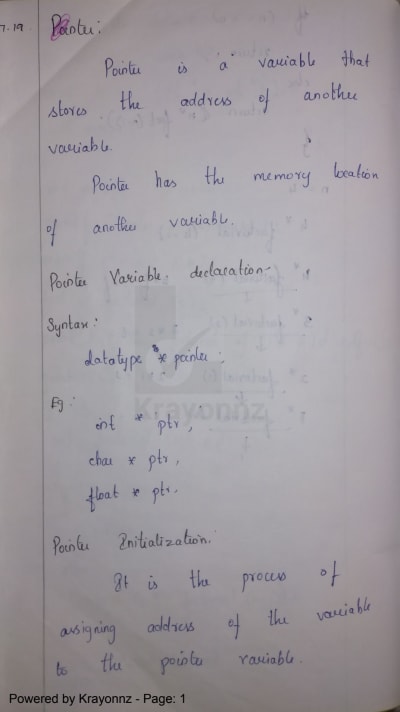 7.19
Pointer:
Pointer is a variable that
stores the address of another
variable.
Pointer has the memory location
of another variable.
Pointer Variable declaration-
Syntax:
datatype * pointer ;
Eg:
int * ptr;
char * ptr,
float * ptr.
Pointer Initialization:
It is the process of
assigning address of the variable
to the pointer variable.
Krayonnz
Powered by Krayonnz - Page: 1